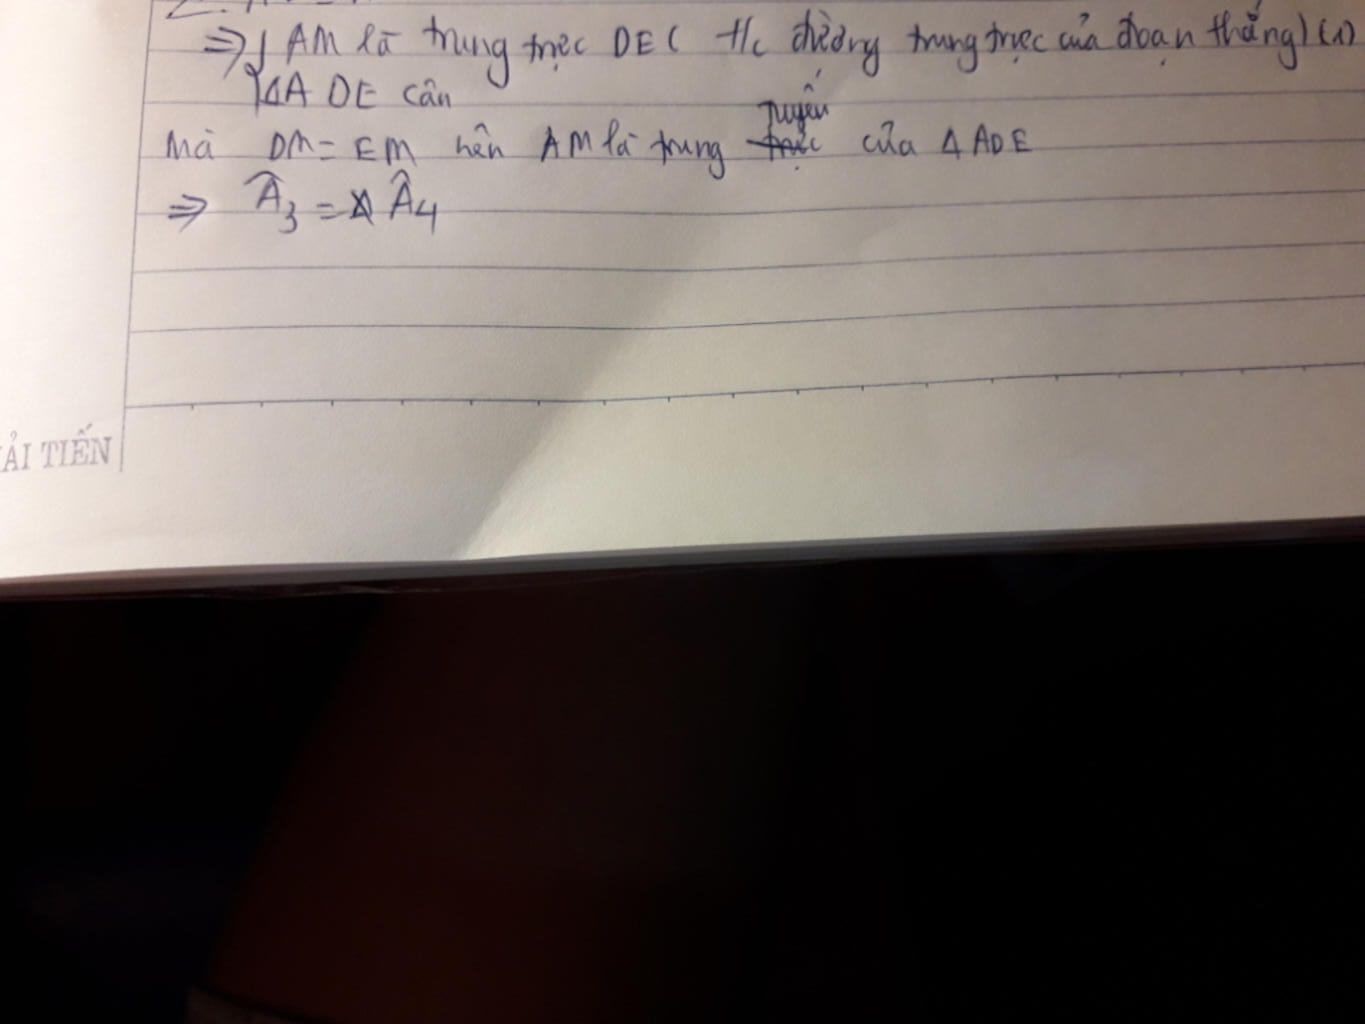 ⇒ { AM là trung trực DE ( t/c đường trung trực của đoạn thẳng) (1)
ΔADE cân
Mà DM = EM nên AM là trung tuyến của Δ ADE
⇒ Â3 = Â4
ẢI TIẾN